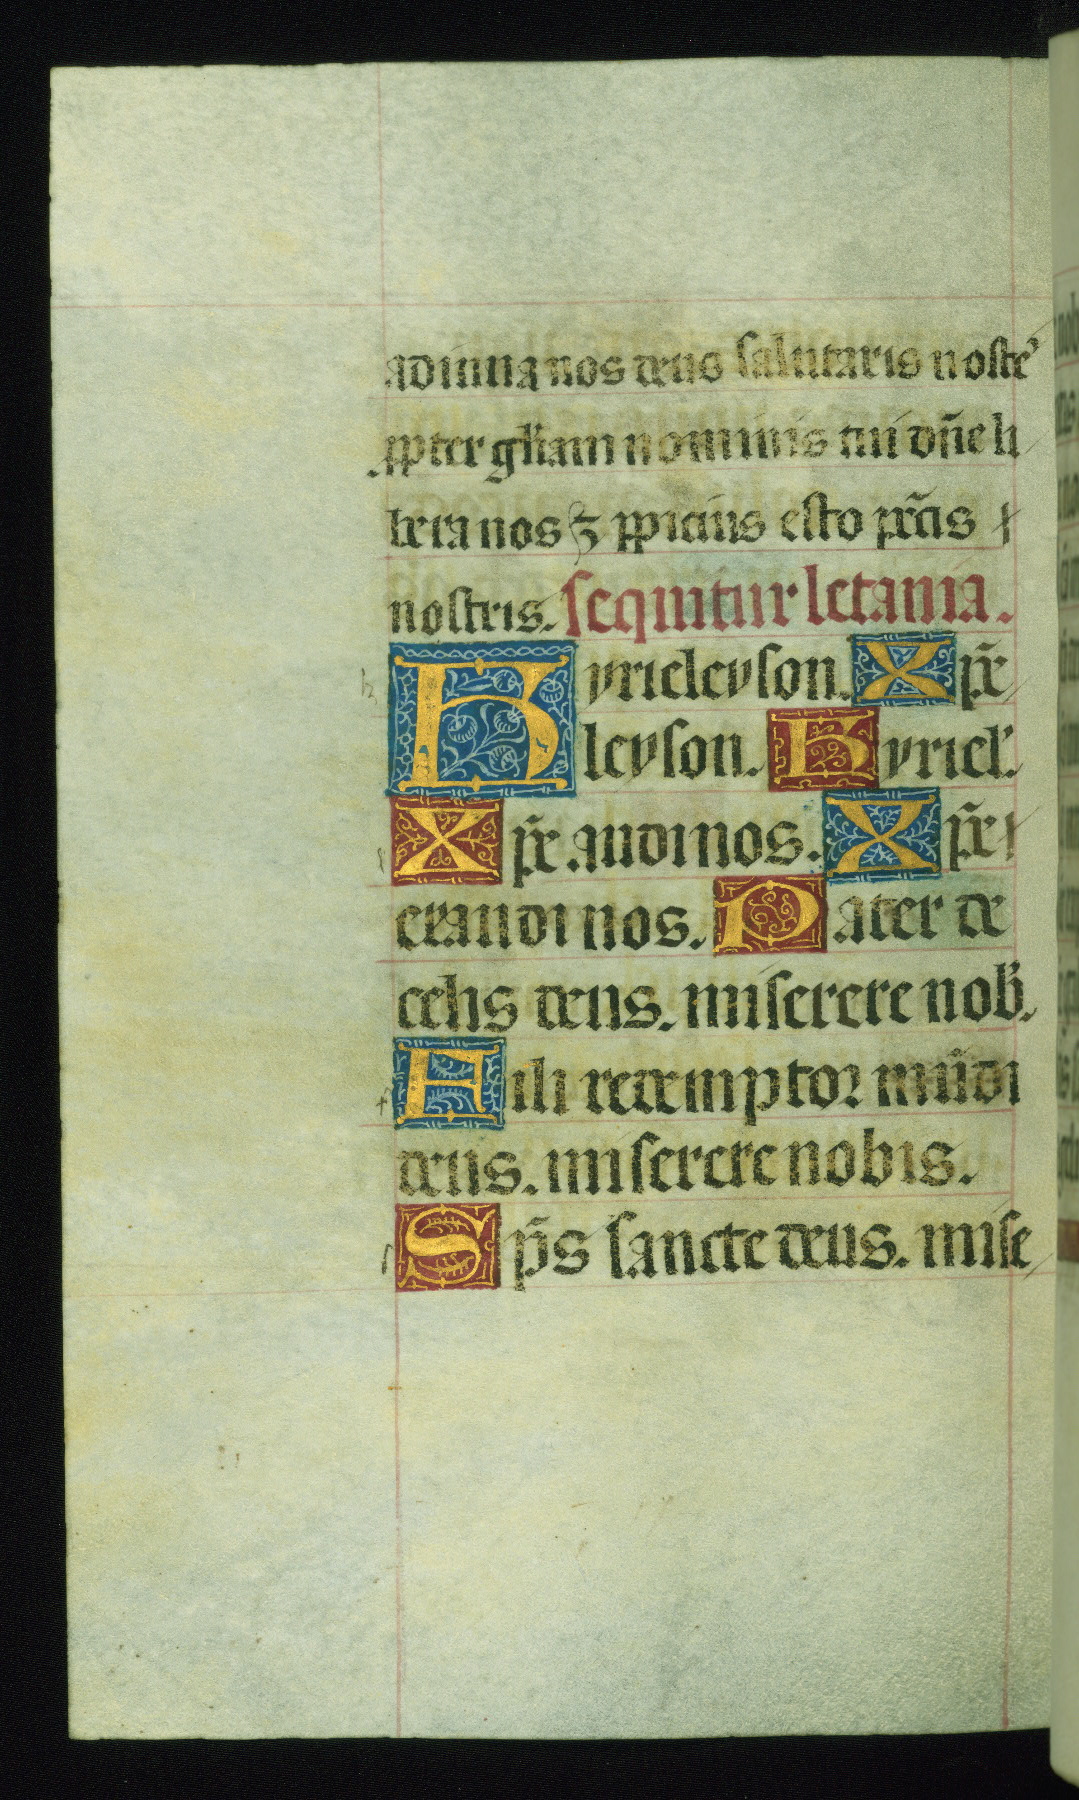 adiuua nos deus salutaris noster̉
ꝓpter gl̃iam nominis tui dñe li
bera nos ⁊ ꝓpicius esto pc̃cis
nostris. Sequitur letania.
Kyrieleyson. Xp̃e
leyson. Kyriel̉.
Xp̃e audi nos. Xp̃e
exaudi nos. Pater de
celis deus. miserere nob̉.
Fili redemptor mũdi
deus. miserere nobis.
Sp̃s sancte deus. mise